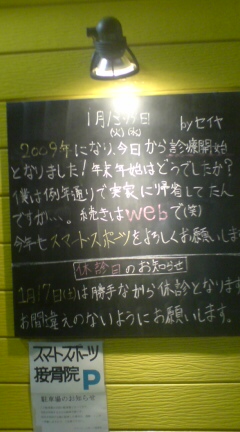 1月
(火)(水)
byセイヤ
2009年になり、今日から診療開始
となりました!年末年始はどうでしたか?
僕は例年通りで実家に帰省してたん
ですが…。続きはwebで(笑)
今年もスマートスポーツをよろしくお願いします
休診日のお知らせ
1月17日(土)は勝手ながら休診となります
お間違えのないようにお願いします。
スマートスポーツ
接骨院 P
駐車場のお知らせ